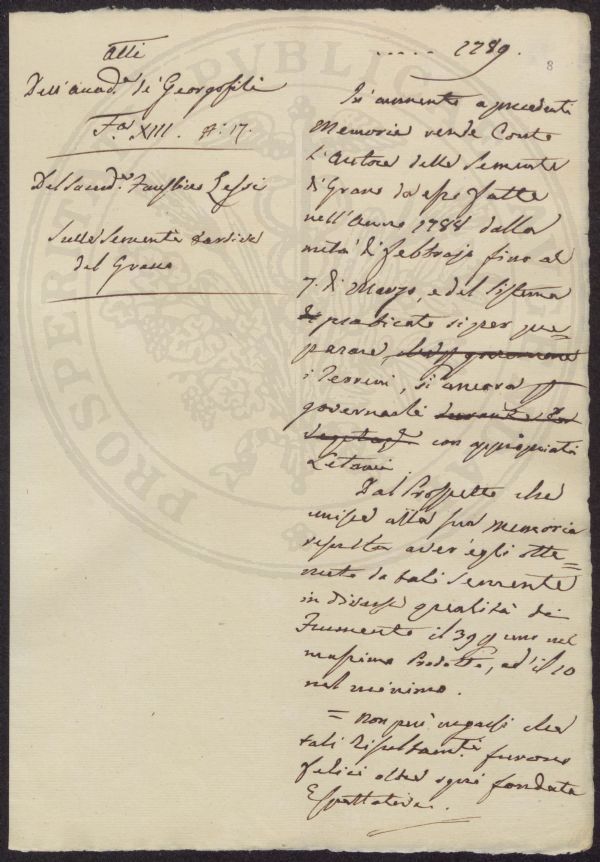 Atti
Dell'Accad.ª de' Georgofili
T.º XIII. n: 17.
Del Sacerd.e Faustino Lessi
Sulle Semente tardive
del Grano
..... 1789.
8
In aumento a precedenti
Memorie rende Conto
l'Autore delle Semente
di Grano da esso fatte
nell'Anno 1788 dalla
metà di febbrajo fino al
7. di Marzo, e del Sistema
praticato sì per pre=
parare
i Terreni, sì ancora p
governarli
con appropriati
Letami
Dal Prospetto che
unisce alla sua memoria
risulta aver'egli otte=
nuto da tali Semente
in diverse qualità di
Frumento il 39 p uno nel
massimo Prodotto, ed il 10
nel minimo.
= Non può negarsi che
tali Resultamenti furono
felici oltre ogni fondata
Espettativa.
PROSPERITATI PUBLICAE